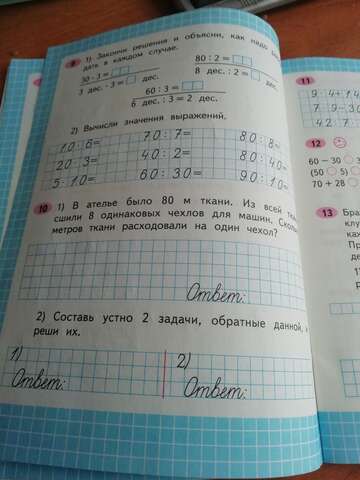 9 1) Закончи решения и объясни, как надо
дать в каждом случае.
30 · 3 =
3 дес. · 3 = дес.
80 : 2 =
8 дес. : 2 = дес.
60 : 3 =
6 дес. : 3 = 2 дес.
2) Вычисли значения выражений.
10·6= 70:7= 80:8=
20·3= 40:2= 80:40=
5·10= 60:30= 90:10=
10 1) В ателье было 80 м ткани. Из всей
сшили 8 одинаковых чехлов для машин.
метров ткани расходовали на один чехол?
Ответ:
2) Составь устно 2 задачи, обратные данной,
реши их.
1) 2)
Ответ: Ответ:
11
12
60 − 30
(50 5)
70 + 28
13